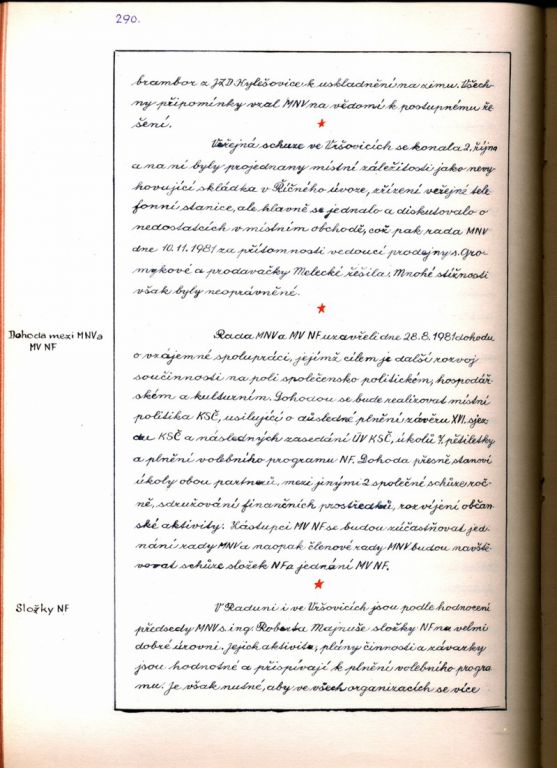 290.
brambor z JZD Hylešovice k uskladnění na zimu. Všech-
ny připomínky vzal MNV na vědomí k postupnému ře-
šení.
Veřejná schůze ve Vršovicích se konala 2. října
a na ní byly projednany místní záležitosti jako nevy-
hovující skládka v Říčného úvoze, zřízení veřejné tele-
fonní stanice, ale hlavně se jednalo a diskutovalo o
nedostatcích v místním obchodě, což pak rada MNV
dne 10.11.1981 za přítomnosti vedoucí prodejny s. Gro-
mykové a prodavačky Melecké řešila. Mnohé stížnosti
však byly neoprávněné.
Dohoda mezi MNV a
MV NF
Rada MNV a MV NF uzavřeli dne 28.8.1981 dohodu
o vzájemné spolupráci, jejímž cílem je další rozvoj
součinnosti na poli společensko politickém, hospodář-
ském a kulturním. Dohodou se bude realizovat místní
politika KSČ, usilující o důsledné plnění závěrů XVI. sjez-
du KSČ a následných zasedání ÚV KSČ, úkolů 7. pětiletky
a plnění volebního programu NF. Dohoda přesně stanoví
úkoly obou partnerů, mezi jinými 2 společné schůze roč-
ně, sdružování finančních prostředků, rozvíjení občan-
ské aktivity. Zástupci MV NF se budou zúčastňovat jed-
nání rady MNV a naopak členové rady MNV budou navště-
vovat schůze složek NF a jednání MV NF.
Složky NF
V Raduni i ve Vršovicích jsou podle hodnocení
předsedy MNV s. ing. Roberta Majnuše složky NF na velmi
dobré úrovni. Jejich aktivita, plány činnosti a závazky
jsou hodnotné a přispívají k plnění volebního progra-
mu. Je však nutné, aby ve všech organizacích se více